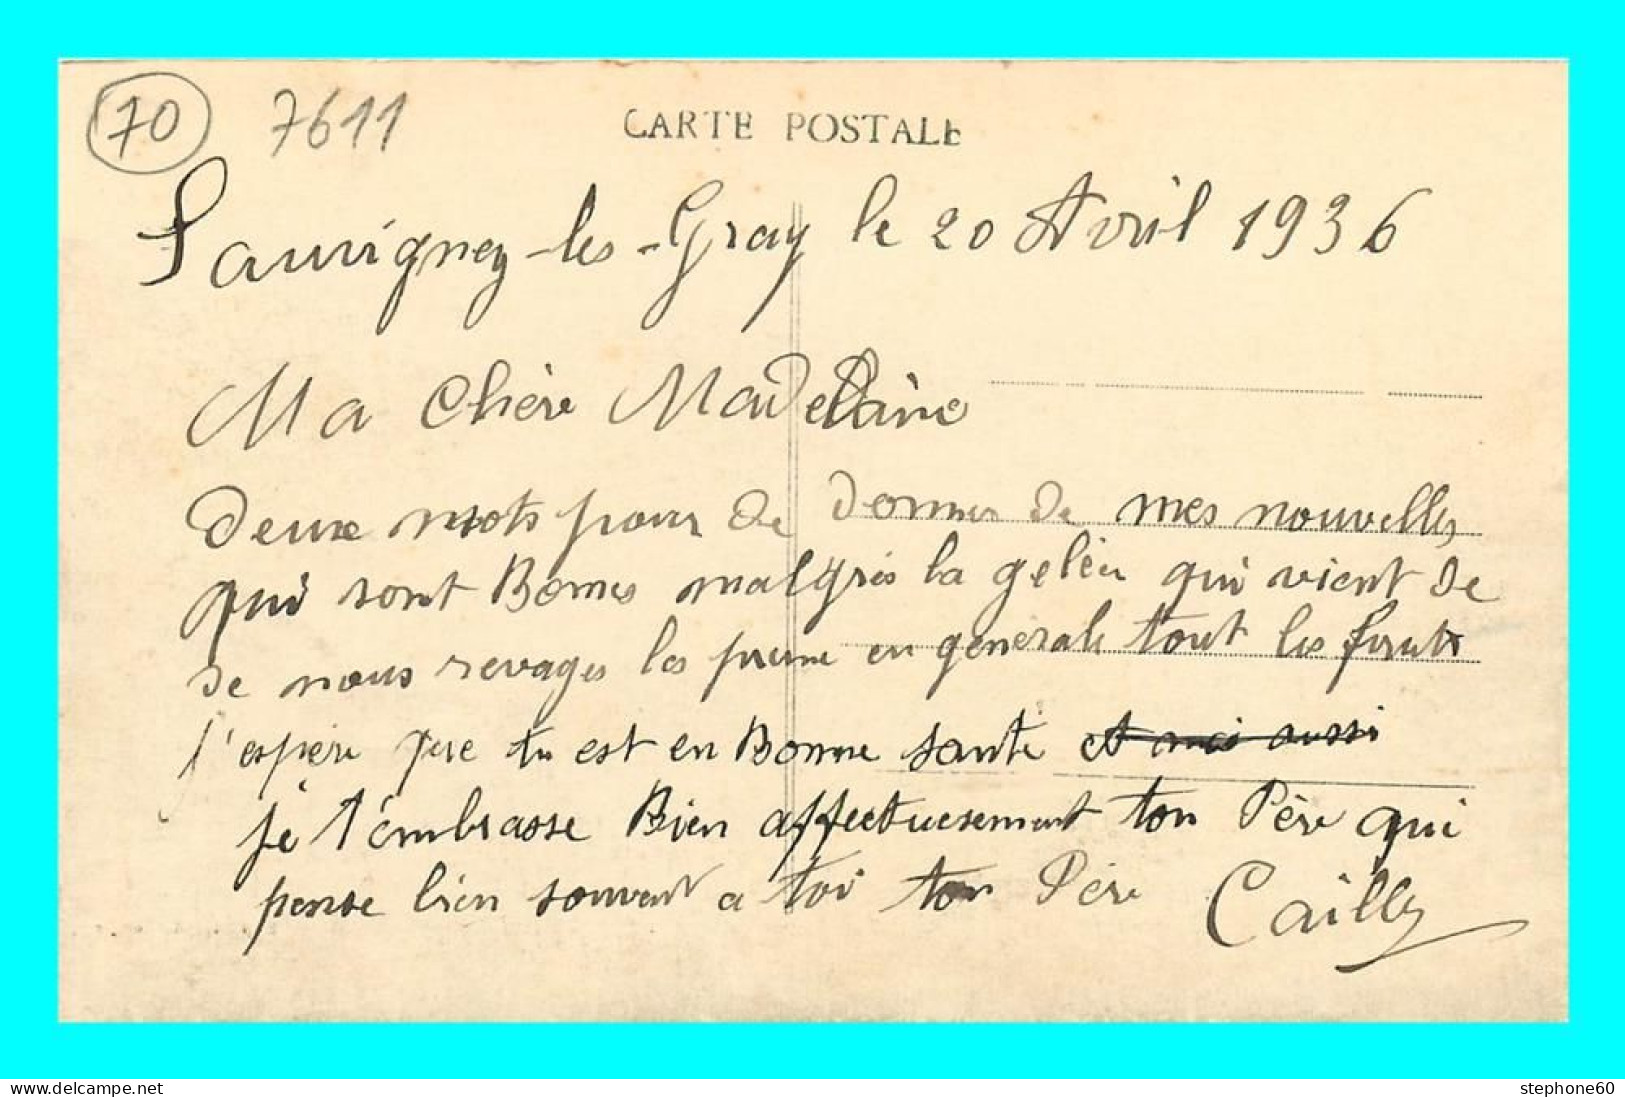 70 7611
CARTE POSTALE
Sauvigney-les-Gray le 20 Avril 1936
Ma Chère Madelaine
Deux mots pour de donner de mes nouvelles
qui sont Bonnes malgrés la gelée qui vient de
de nous revages les prune en generale tout les fruits
j'espère que tu est en Bonne sante et moi aussi
je t'embrasse Bien affectueusement ton Père qui
pense bien souvent a toi ton Père Cailly
www.delcampe.net
stephone60